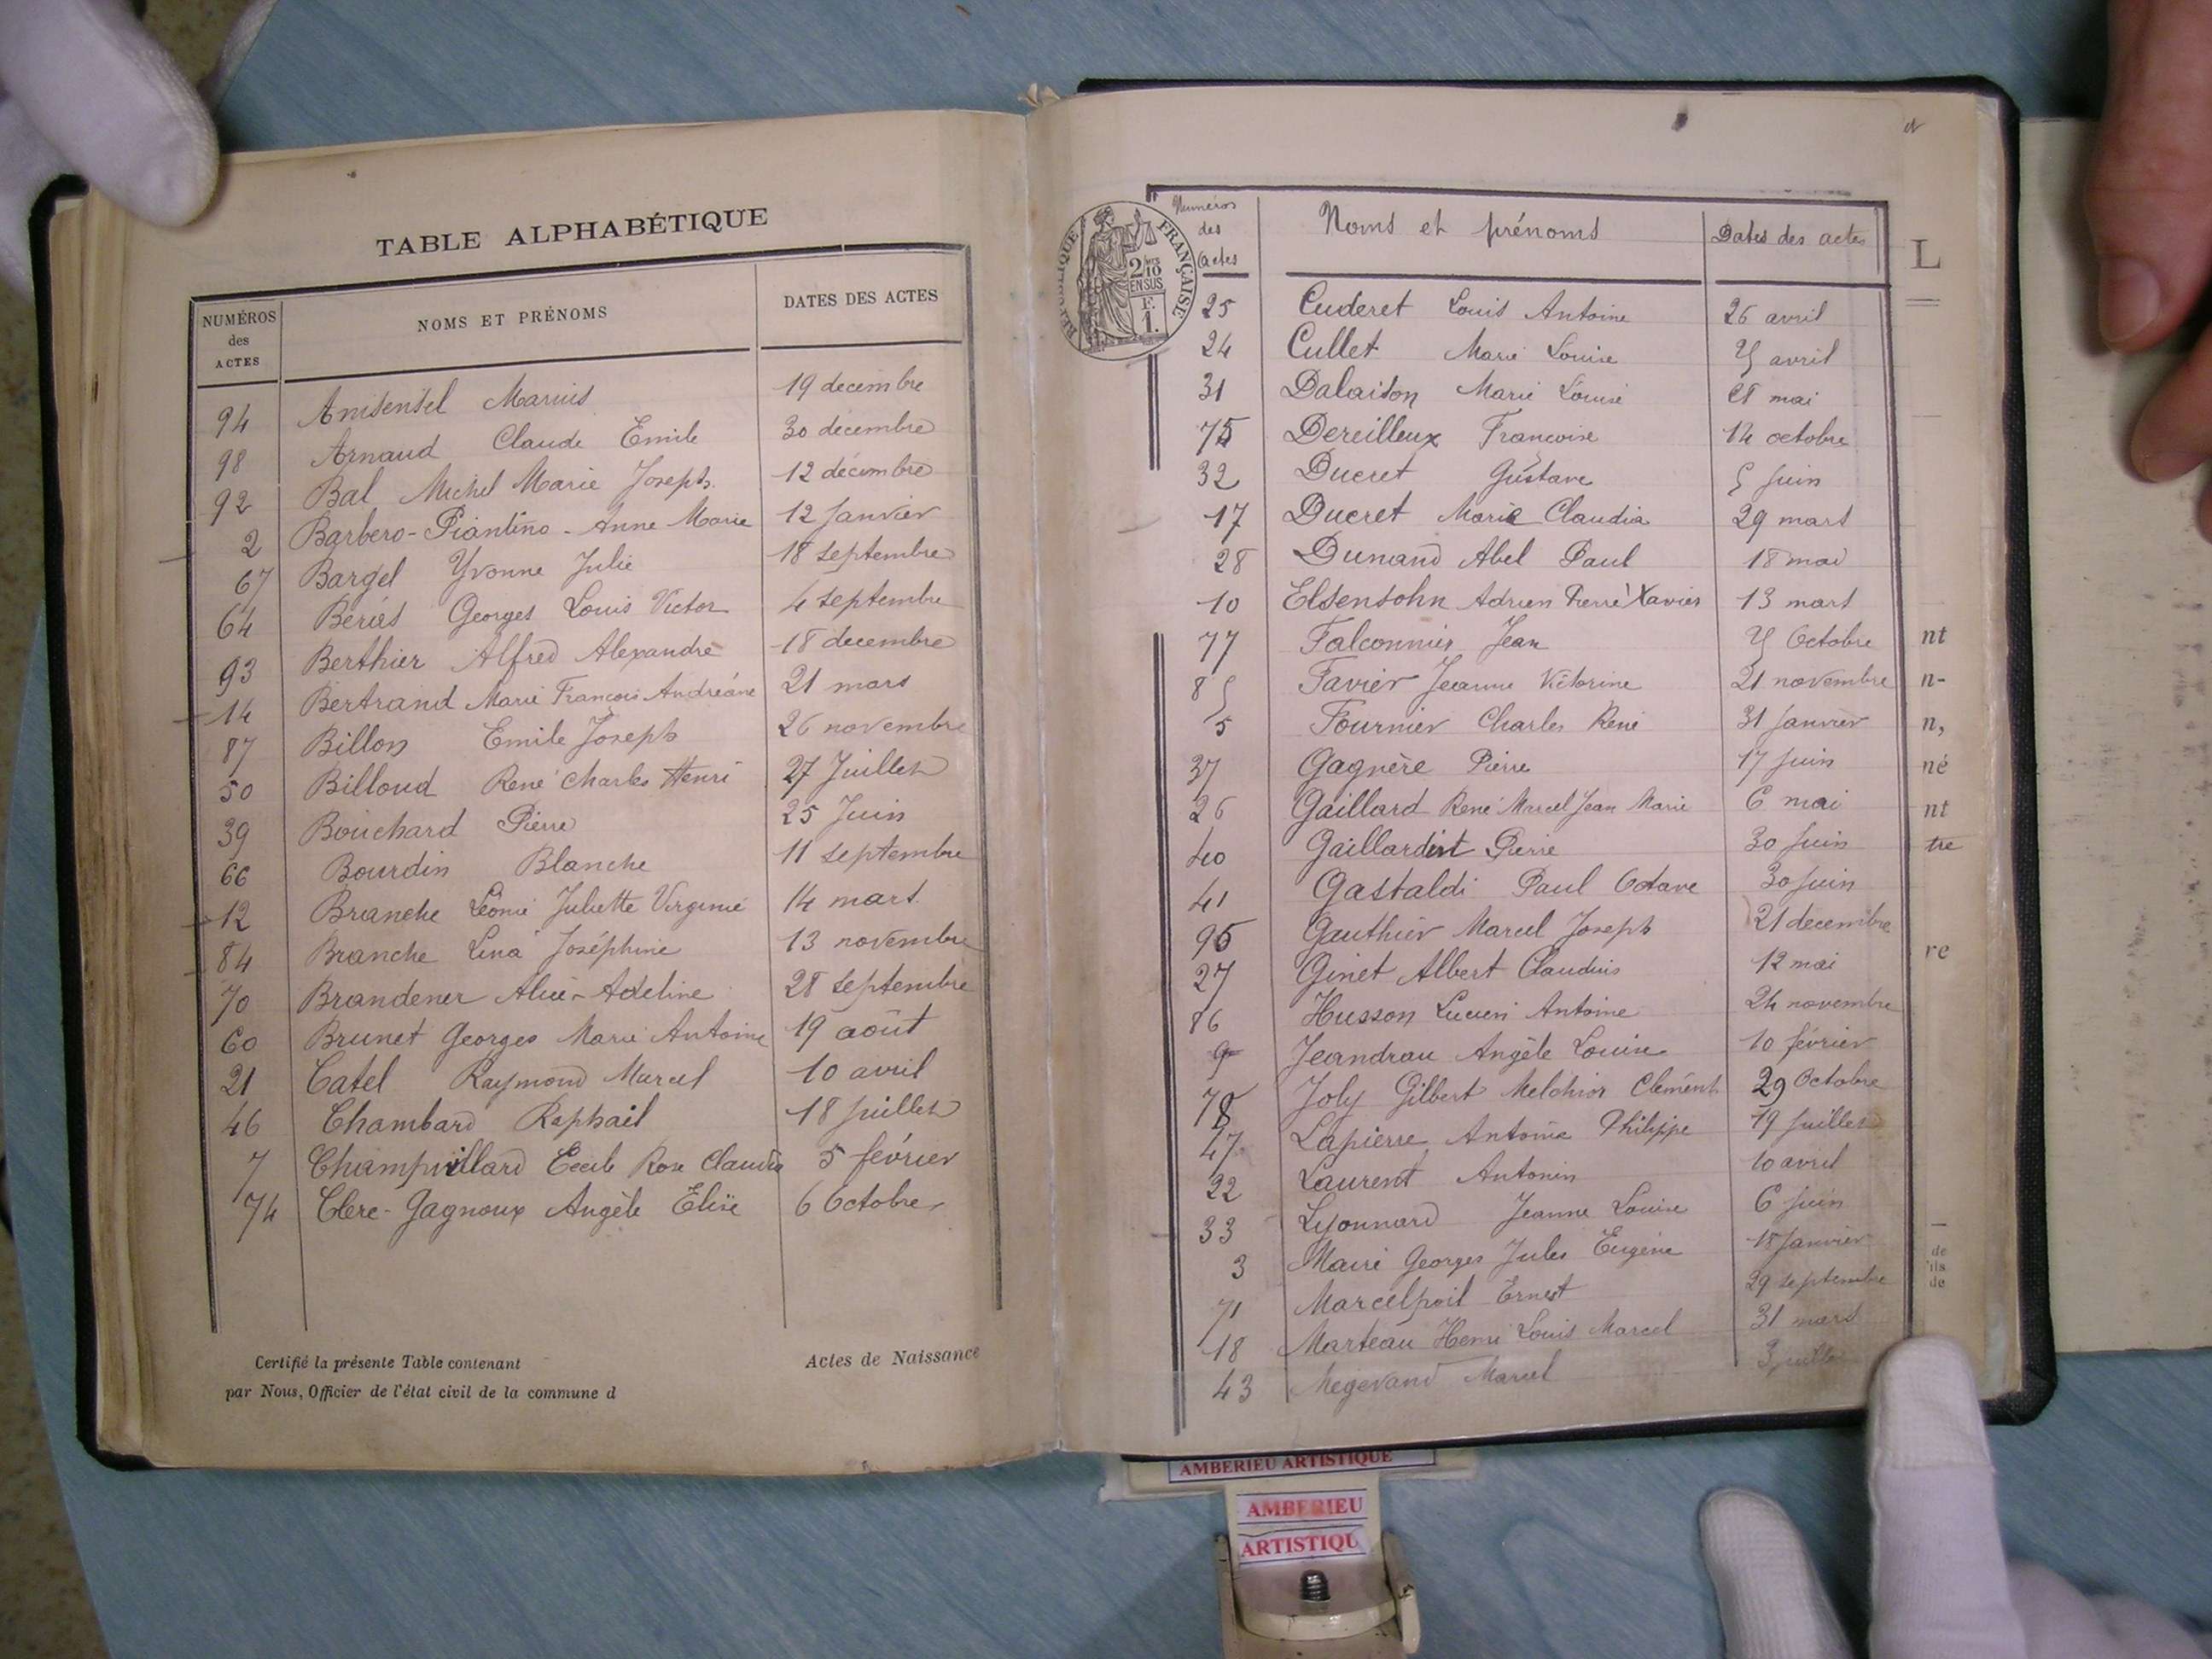 TABLE ALPHABÉTIQUE
NUMÉROS des ACTES NOMS ET PRÉNOMS DATES DES ACTES
94 Anisensel Marius 19 decembre
98 Arnaud Claude Emile 30 decembre
92 Bal Michel Marie Joseph 12 décembre
2 Barbero-Piantino - Anne Marie 12 Janvier
67 Bargel Yvonne Julie 18 septembre
64 Beriès Georges Louis Victor 4 septembre
93 Berthier Alfred Alexandre 18 decembre
14 Bertrand Marie François Andréane 21 mars
87 Billon Emile Joseph 26 novembre
50 Billoud René Charles Henri 27 Juillet
39 Bouchard Pierre 25 Juin
66 Bourdin Blanche 11 septembre
12 Branche Léonie Juliette Virginie 14 mars
84 Branche Lina Joséphine 13 novembre
70 Brandener Alice-Adeline 28 septembre
60 Brunet Georges Marie Antoine 19 août
21 Catel Raymond Marcel 10 avril
46 Chambard Raphaël 18 juillet
7 Champvillard Cécile Rose Claudia 5 février
74 Clerc-Gagnoux Angèle Elise 6 Octobre
Certifié la présente Table contenant Actes de Naissance
par Nous, Officier de l'état civil de la commune d
RÉPUBLIQUE FRANÇAISE
2/10
EN SUS
F.
1.
Numéros des Actes Noms et prénoms Dates des actes
25 Cuderet Louis Antoine 26 avril
24 Cullet Marie Louise avril
31 Dalaison Marie Louise mai
75 Dereilleux Françoise 14 octobre
32 Ducret Gustave 5 juin
17 Ducret Marie Claudia 29 mars
28 Dunand Abel Paul 18 mai
10 Elsensohn Adrien Pierre Xavier 13 mars
77 Falconnier Jean Octobre
85 Favier Jeanne Victorine 21 novembre
5 Fournier Charles René 31 Janvier
37 Gagnère Pierre 17 juin
26 Gaillard René Marcel Jean Marie 6 mai
40 Gaillardint Pierre 30 juin
41 Gastaldi Paul Octave 30 juin
95 Gauthier Marcel Joseph 21 décembre
27 Ginet Albert Claudius 12 mai
86 Husson Lucien Antoine 24 novembre
9 Jeandrau Angèle Louise 10 février
78 Joly Gilbert Melchior Clément 29 Octobre
47 Lapierre Antoine Philippe 19 juillet
22 Laurent Antonin 10 avril
33 Lyonnard Jeanne Louise 6 juin
3 Mairé Georges Jules Eugène 18 Janvier
71 Marcelpoil Ernest 29 septembre
18 Marteau Henri Louis Marcel 31 mars
43 Mégevand Marcel 3 juillet
L
nt
n-
n,
né
nt
tre
re
de
'ils
de
AMBERIEU ARTISTIQUE
AMBERIEU
ARTISTIQU